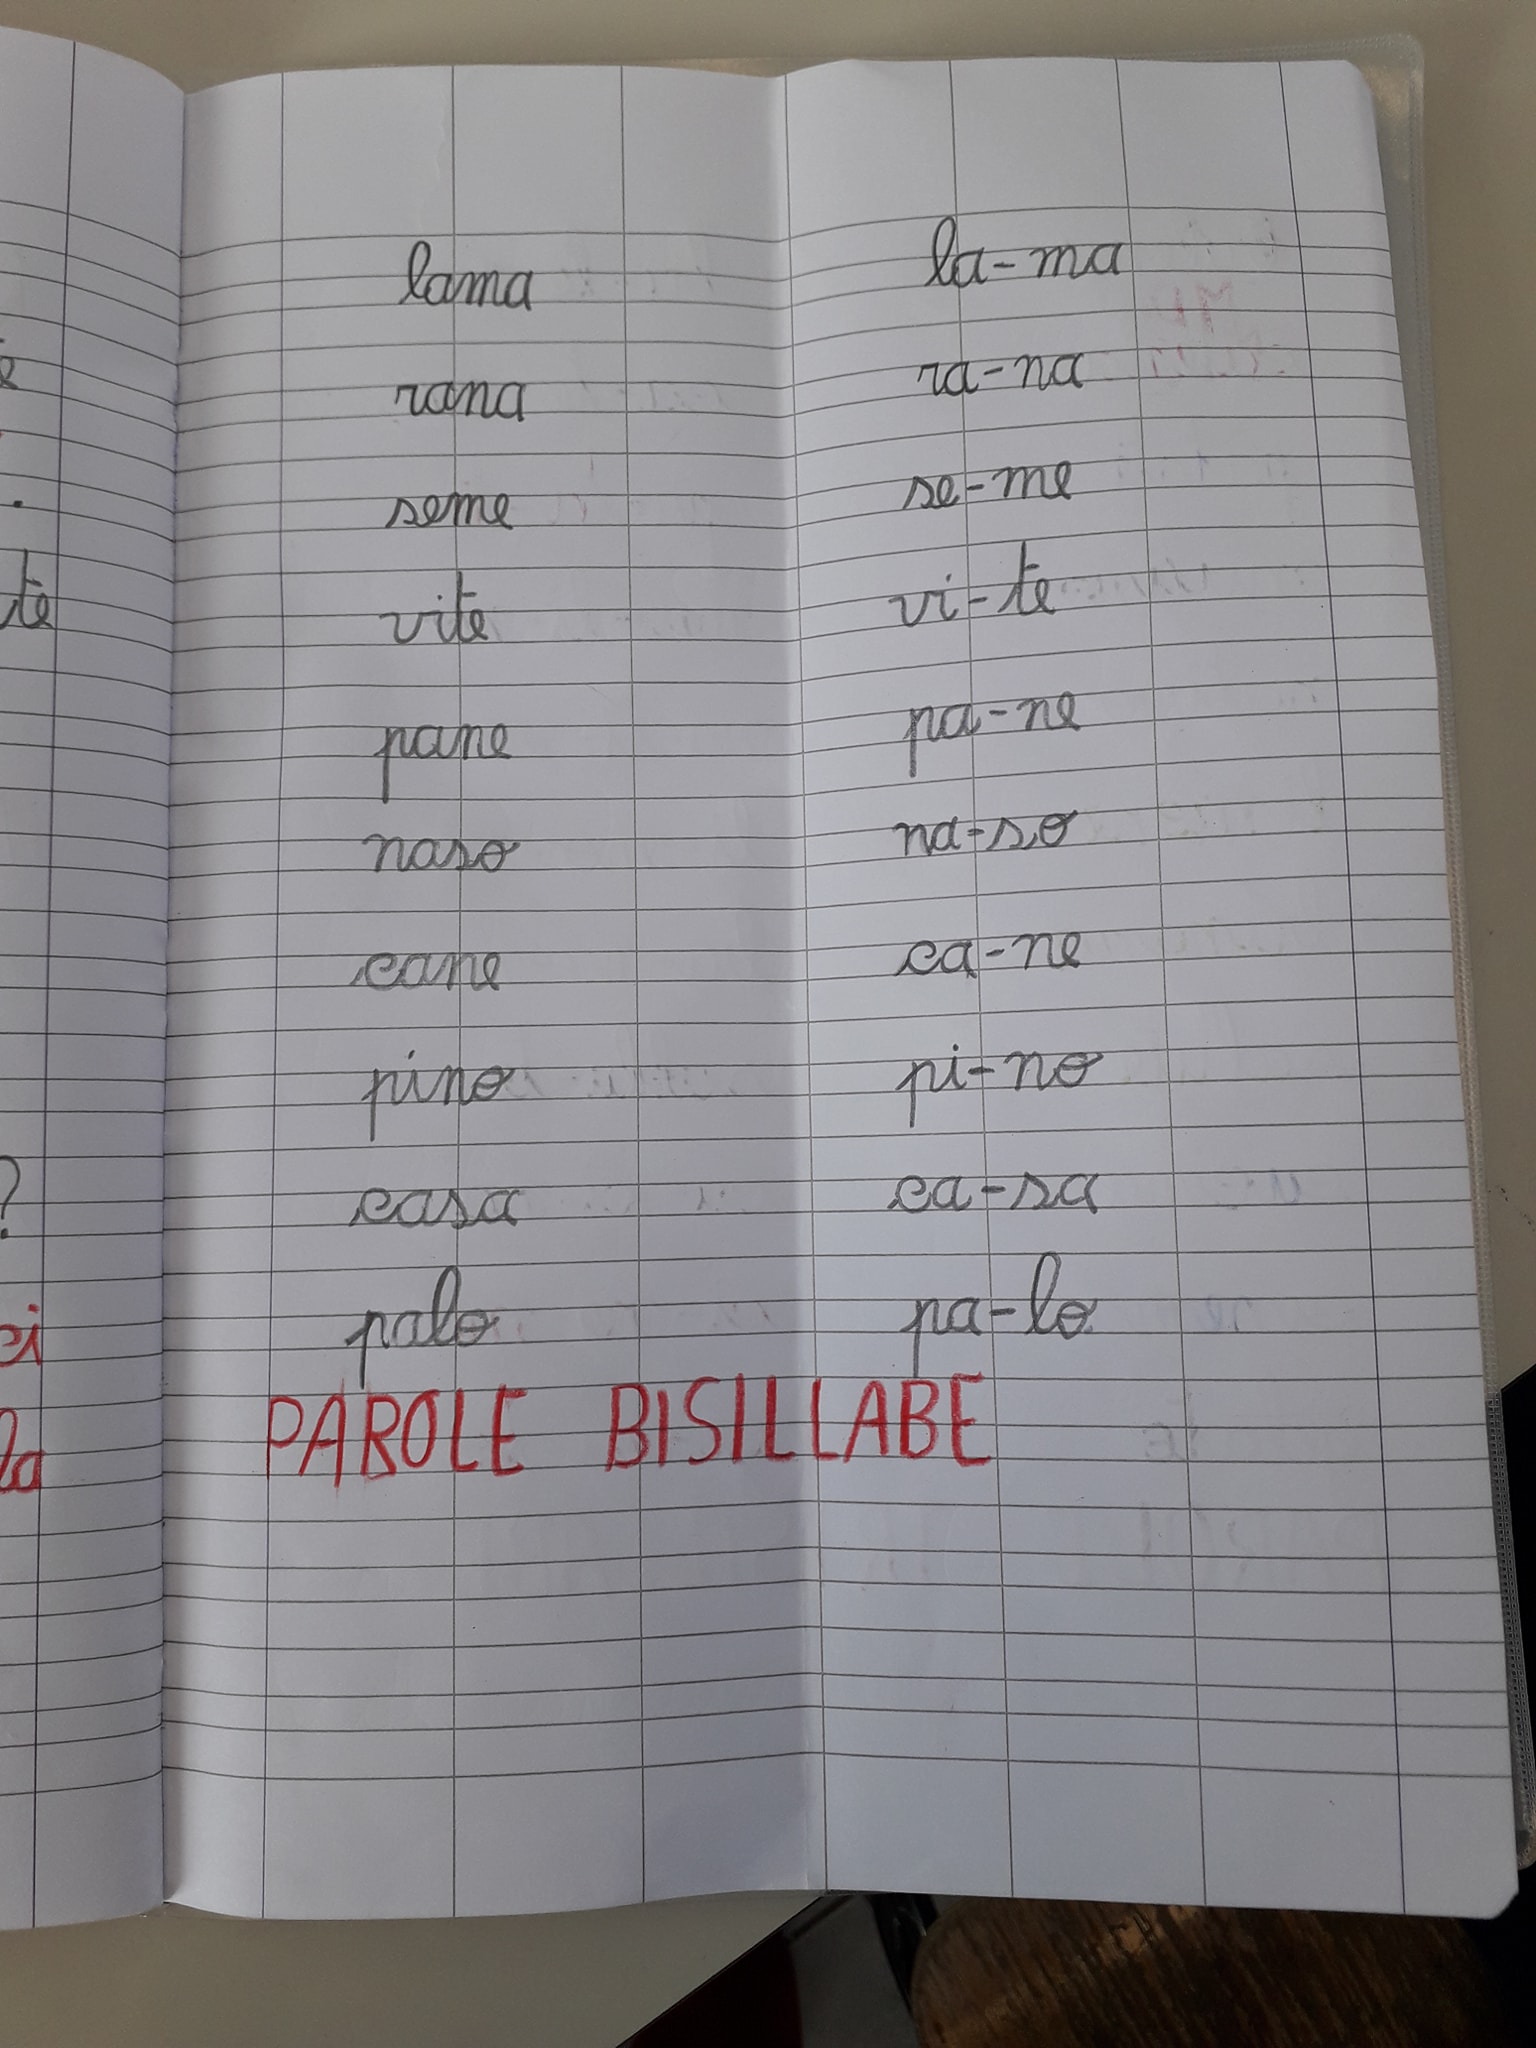 lama la-ma
rana ra-na
seme se-me
vite vi-te
pane pa-ne
naso na-so
cane ca-ne
pino pi-no
casa ca-sa
palo pa-lo
PAROLE BISILLABE